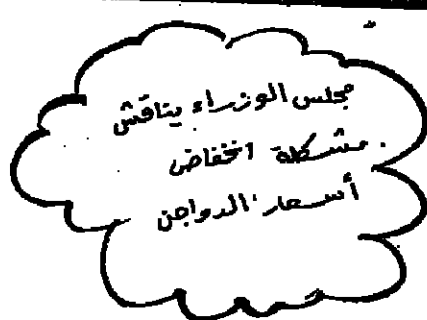 مجلس الوزراء يناقش
مشكلة انخفاض
أسعار الدواجن